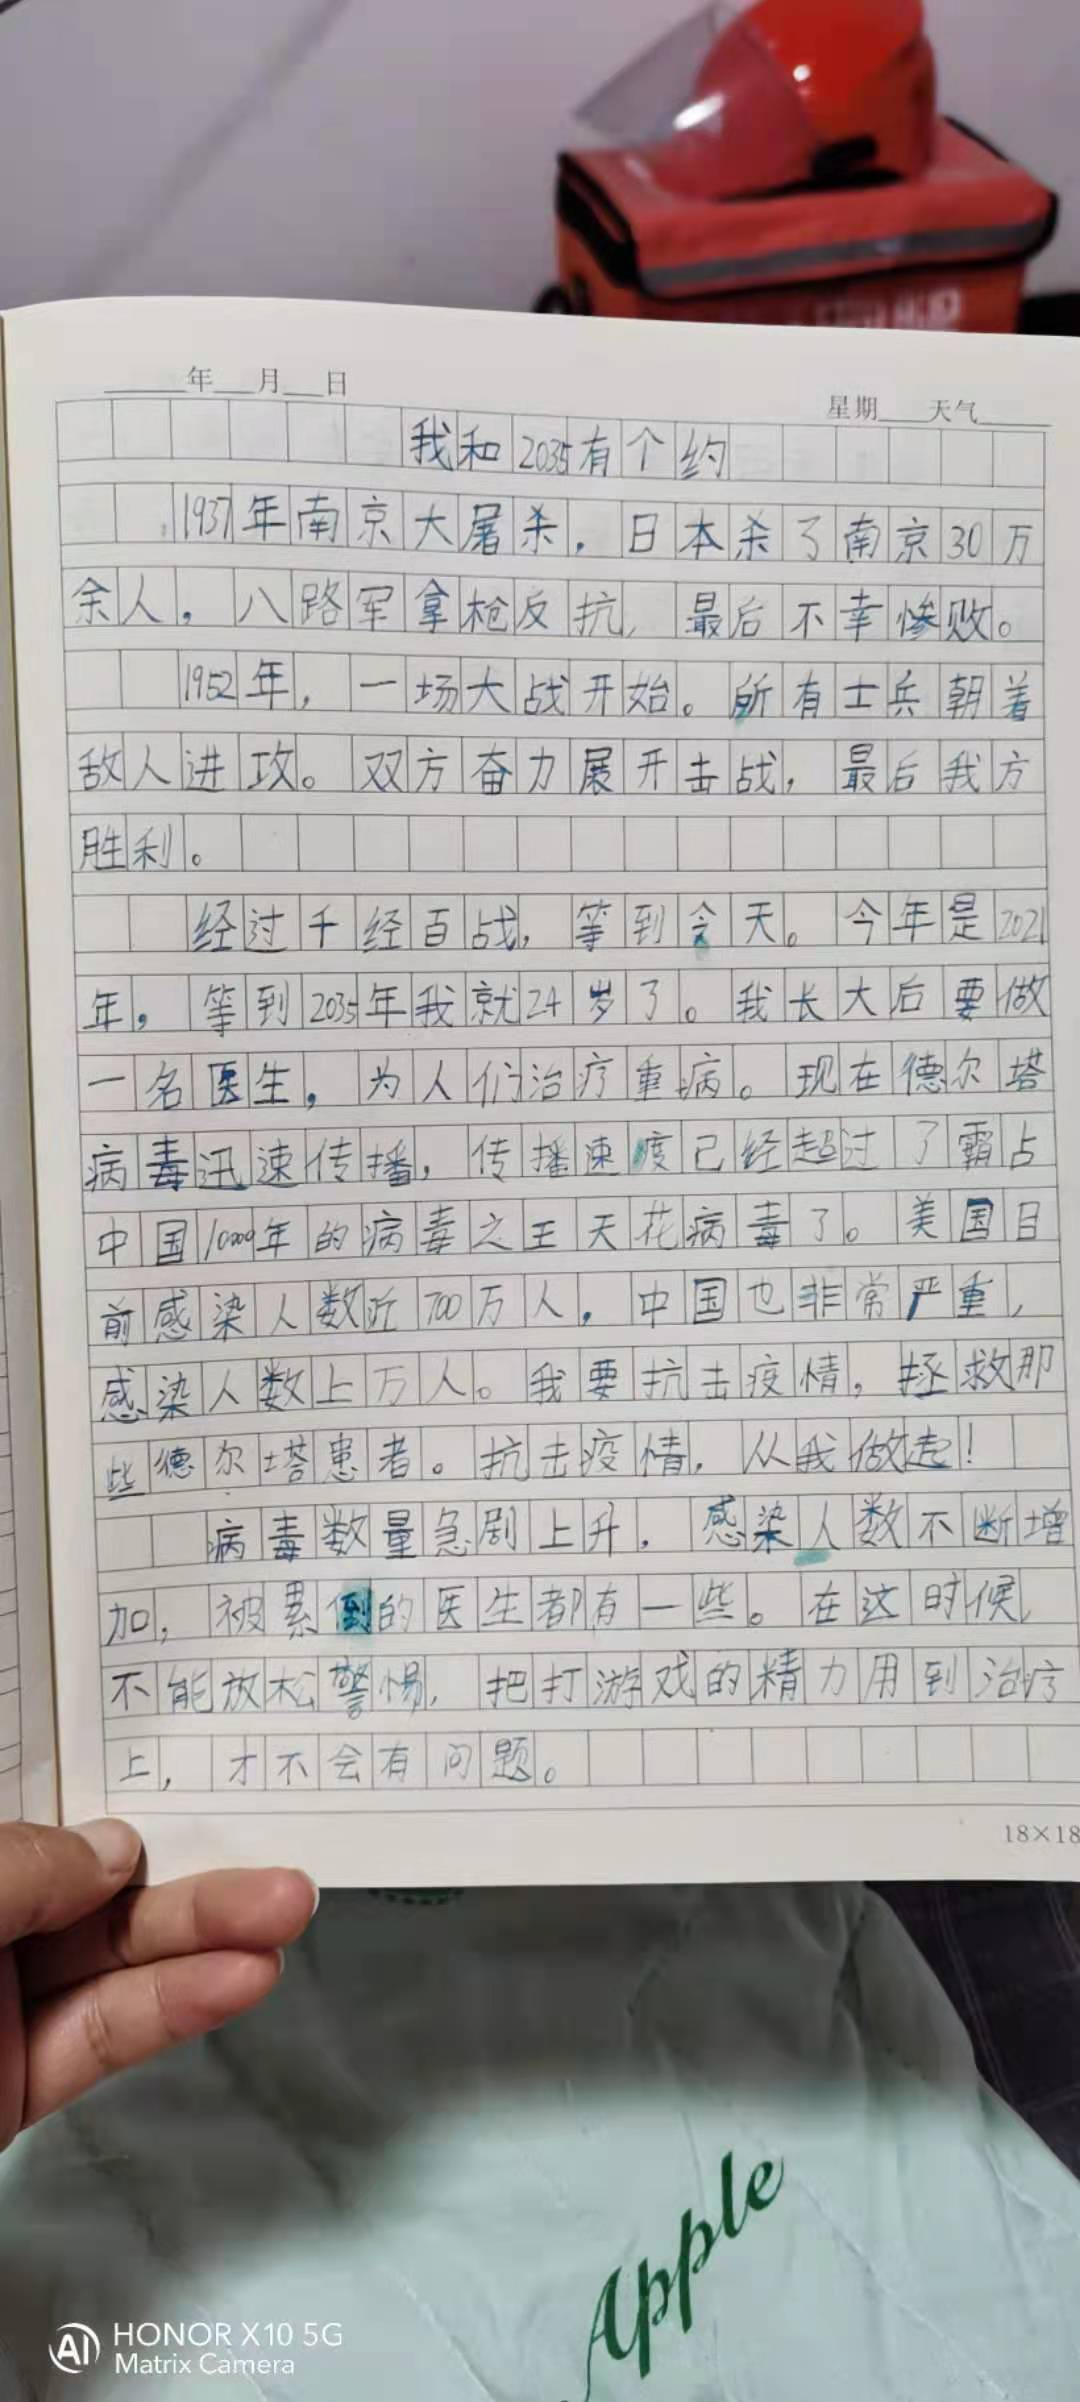 年 月 日
星期 天气
我和2035有个约
1937年南京大屠杀，日本杀了南京30万
余人，八路军拿枪反抗，最后不幸惨败。
1952年，一场大战开始。所有士兵朝着
敌人进攻。双方奋力展开击战，最后我方
胜利。
经过千经百战，等到今天。今年是2021
年，等到2035年我就24岁了。我长大后要做
一名医生，为人们治疗重病。现在德尔塔
病毒迅速传播，传播速度已经超过了霸占
中国10000年的病毒之王天花病毒了。美国目
前感染人数近700万人，中国也非常严重，
感染人数上万人。我要抗击疫情，拯救那
些德尔塔患者。抗击疫情，从我做起！
病毒数量急剧上升，感染人数不断增
加，被累倒的医生都有一些。在这时候，
不能放松警惕，把打游戏的精力用到治疗
上，才不会有问题。
18×18
Apple
AI HONOR X10 5G
Matrix Camera